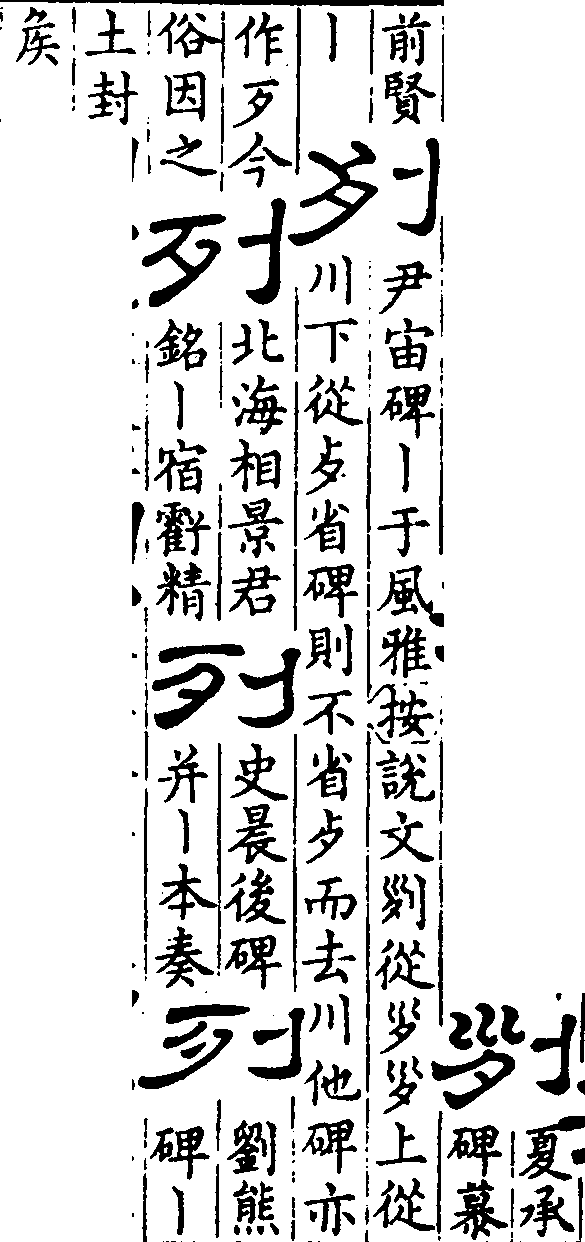 列
夏承
碑慕
前賢
丨
列
尹宙碑丨于風雅按說文𠛱從𡿪𡿪上從
川下從歺省碑則不省歺而去川他碑亦
作歹今
俗因之
列
北海相景君
銘丨宿虧精
列
史晨後碑
并丨本奏
列
劉熊
碑丨
土封
矦